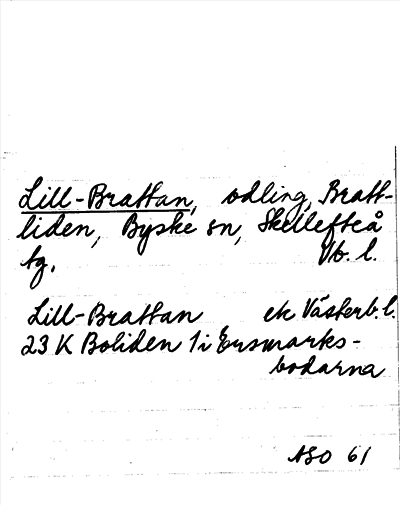 Lill-Brattan, odling, Bratt-
liden, Byske sn, Skellefteå
tg. Vb. l.
Lill-Brattan ek Västerb. l.
23 K Boliden 1 i Ersmarks-
bodarna
ASO 61